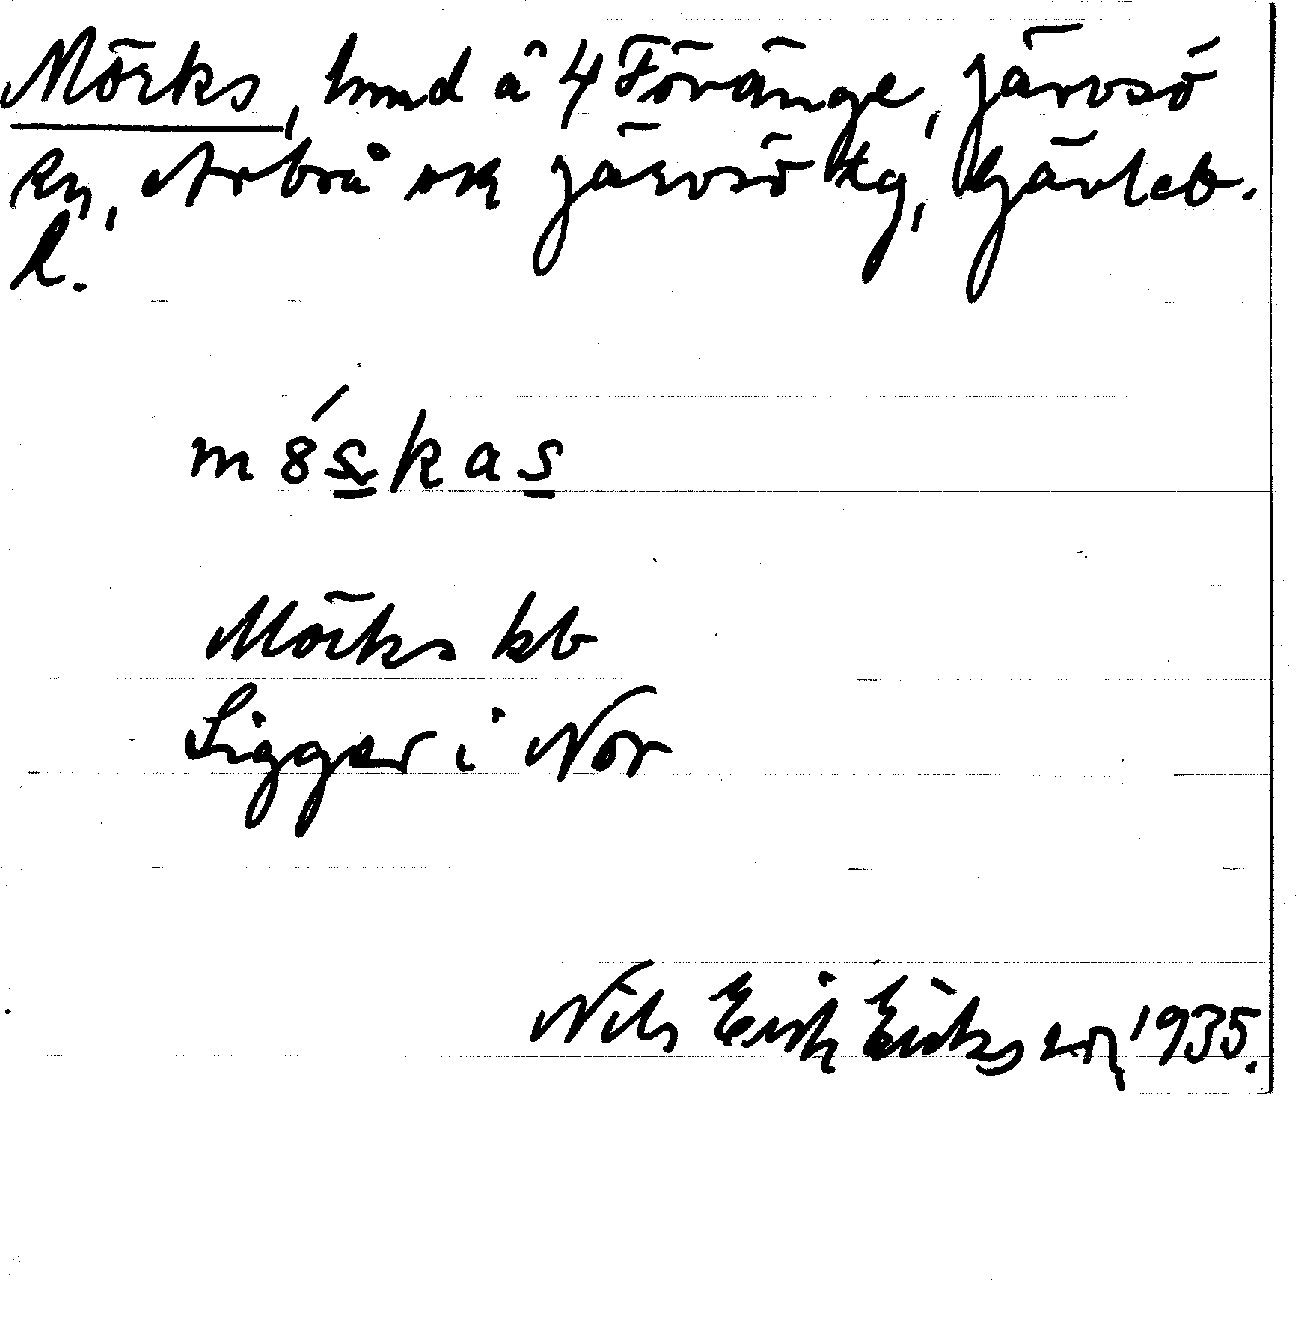 Mörks, hmd å 4 Föränge, Järvsö
sn, Arbrå ok Järvsö tg, Gävleb.
l.
m8́skas
Mörks kb
Ligger i Nor
Nils Erik Eriksson, 1935.